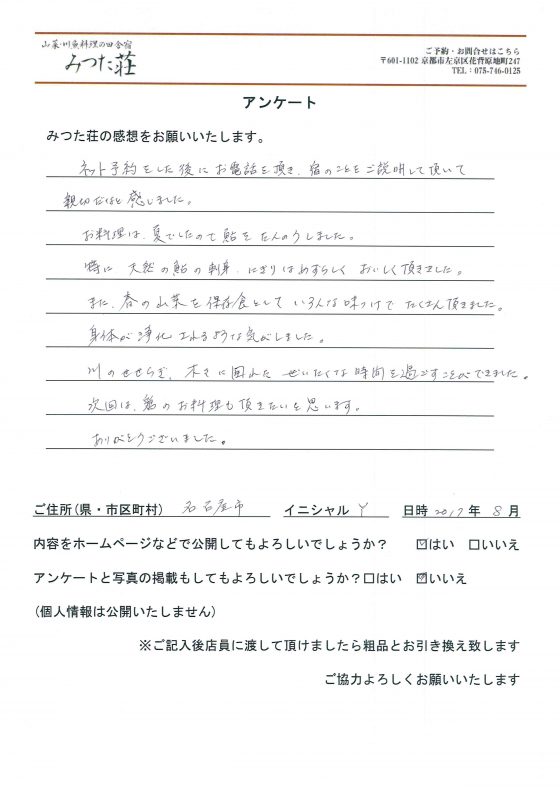 山菜・川魚料理の田舎宿
みつた荘
ご予約・お問合せはこちら
〒601-1102 京都市左京区花背原地町247
TEL：075-746-0125
アンケート
みつた荘の感想をお願いいたします。
ネット予約をした後にお電話を頂き、宿のことをご説明して頂いて
親切だなと感じました。
お料理は、夏でしたので鮎をたんのうしました。
特に 天然の鮎の刺身、にぎりはめずらしく おいしく頂きました。
また、春の山菜を保存食として いろんな味つけで たくさん頂きました。
身体が浄化されるような気がしました。
川のせせらぎ、木々に囲れた ぜいたくな時間を過ごすことができました。
次回は、鶏のお料理も頂きたいと思います。
ありがとうございました。
ご住所(県・市区町村) 名古屋市 イニシャル Y 日時 2017 年 8 月
内容をホームページなどで公開してもよろしいでしょうか？ ☑はい □いいえ
アンケートと写真の掲載もしてもよろしいでしょうか？□はい ☑いいえ
(個人情報は公開いたしません)
※ご記入後店員に渡して頂けましたら粗品とお引き換え致します
ご協力よろしくお願いいたします